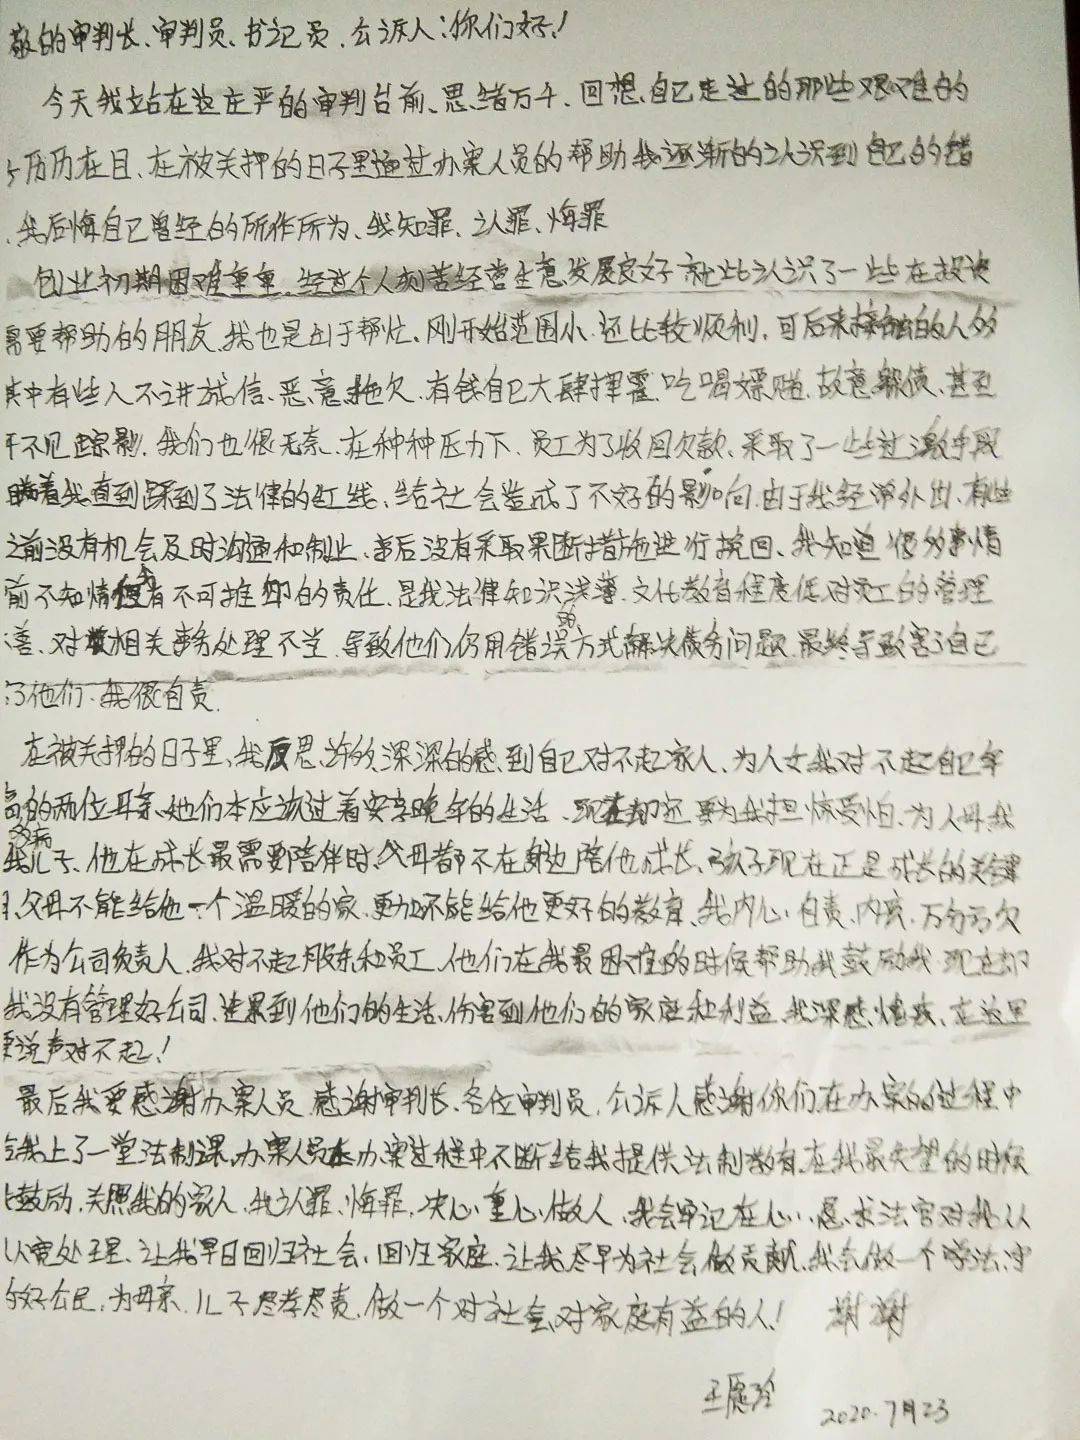 敬的审判长、审判员、书记员、公诉人：你们好！
今天我站在这庄严的审判台前、思绪万千、回想自己走过的那些艰难的
历历在目、在被关押的日子里通过办案人员的帮助我逐渐的认识到自己的错
、我后悔自己曾经的所作所为、我知罪、认罪、悔罪
创业初期困难重重、经过个人刻苦经营生意发展良好就此认识了一些在投资
需要帮助的朋友、我也是出于帮忙、刚开始范围小还比较顺利，可后来接触的人多
其中有些人不讲诚信、恶意拖欠、有钱自己大肆挥霍、吃喝嫖赌、故意躲债、甚至
不见踪影、我们也很无奈、在种种压力下、员工为了收回欠款、采取了一些过激手段
瞒着我直到踩到了法律的红线、给社会造成了不好的影响、由于我经常外出、有些
之前没有机会及时沟通和制止、事后没有采取果断措施进行挽回、我知道很多事情
前不知情但我有不可推卸的责任、是我法律知识浅薄、文化教育程度低对员工的管理
善、对相关事务处理不当、导致他们仍用错误的方式解决债务问题、最终导致害了自己
了他们、我很自责、
在被关押的日子里、我反思许多、深深的感到自己对不起家人、为人女我对不起自己年
高多病的两位母亲、她们本应该过着安享晚年的生活、现在却还要为我担惊受怕、为人母我
我儿子、他在成长最需要陪伴时、父母都不在身边陪他成长、孩子现在正是成长的关键
父母不能给他一个温暖的家、更加不能给他更好的教育、我内心自责、内疚、万分亏欠
作为公司负责人、我对不起股东和员工、他们在我最困难的时候帮助我鼓励我、现在却
我没有管理好公司、连累到他们的生活、伤害到他们的家庭和利益、我深感愧疚、在这里
要说声对不起！
最后我要感谢办案人员、感谢审判长、各位审判员、公诉人感谢你们在办案的过程中
给我上了一堂法制课、办案人员在办案过程中不断给我提供法制教育、在我最失望的时候
鼓励、关照我的家人、我认罪、悔罪、决心重心做人、我会牢记在心、恳求法官对我从
从宽处理、让我早日回归社会、回归家庭、让我尽早为社会做贡献、我会做一个学法、守
的好公民、为母亲、儿子尽孝尽责、做一个对社会、对家庭有益的人！ 谢谢
2020.7月23